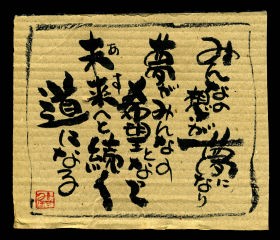 みんなの
想いが
夢に
なり
夢がみんなの
希望となって
未来へと続く
あす
道になる